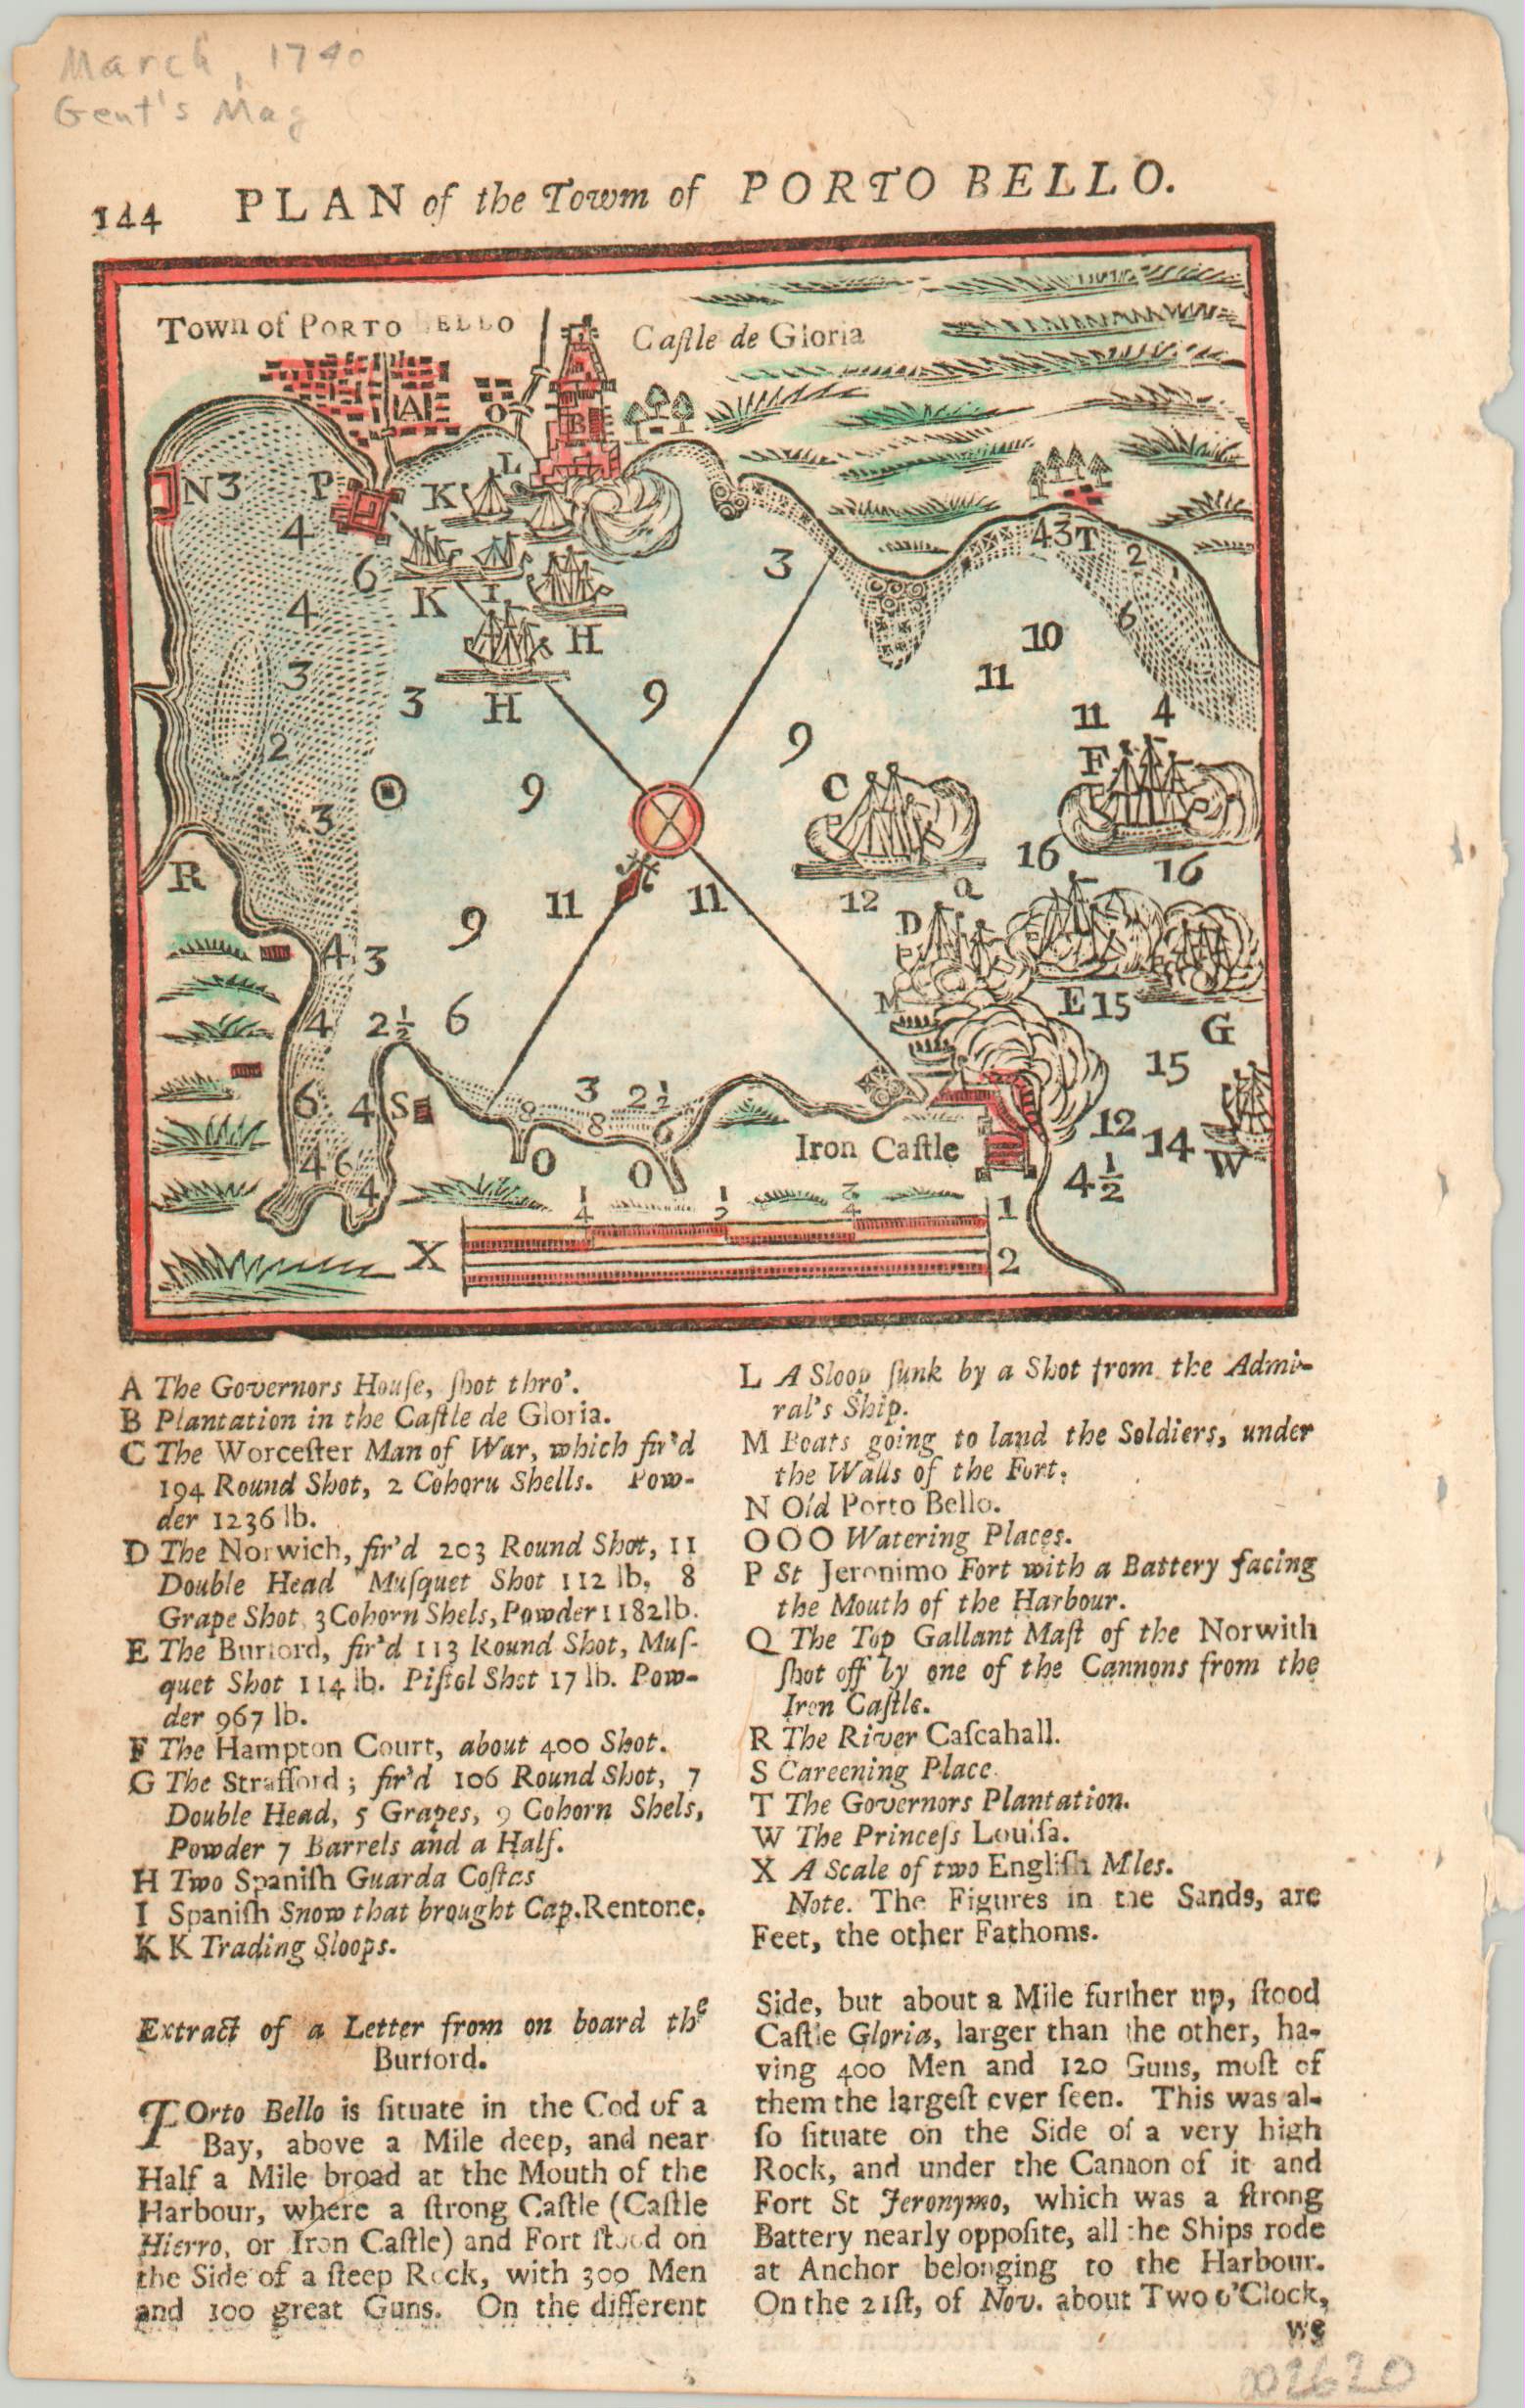 March, 1740
Gent's Mag
144 PLAN of the Towm of PORTO BELLO.
Town of PORTO BELLO
Caſtle de Gloria
A
O
B
L
N 3 P K
4
6
4
K I
H
3
43T
2
1
6
10
11
3
3
H
9
11 4
2
9
F
C
9
3
16
16
R
11
11
12
Q
D
9
4 3
M
E 15
4 2½ 6
G
15
3 2½
6 4 S
8
8
6
12
14
W
Iron Caſtle
O
O
4 6
4
4½
¼ ½ ¾ 1
X
2
A The Governors Houſe, ſhot thro'.
B Plantation in the Caſtle de Gloria.
C The Worceſter Man of War, which fir'd
194 Round Shot, 2 Cohoru Shells. Pow-
der 1236 lb.
D The Norwich, fir'd 203 Round Shot, 11
Double Head Muſquet Shot 112 lb, 8
Grape Shot 3 Cohorn Shels, Powder 1182lb.
E The Burford, fir'd 113 Round Shot, Muſ-
quet Shot 114 lb. Piſtol Shot 17 lb. Pow-
der 967 lb.
F The Hampton Court, about 400 Shot.
G The Strafford; fir'd 106 Round Shot, 7
Double Head, 5 Grapes, 9 Cohorn Shels,
Powder 7 Barrels and a Half.
H Two Spaniſh Guarda Coſtas
I Spaniſh Snow that brought Cap. Rentone.
K K Trading Sloops.
L A Sloop ſunk by a Shot from the Admi-
ral's Ship.
M Boats going to land the Soldiers, under
the Walls of the Fort.
N Old Porto Bello.
O O O Watering Places.
P St Jeronimo Fort with a Battery facing
the Mouth of the Harbour.
Q The Top Gallant Maſt of the Norwith
ſhot off by one of the Cannons from the
Iron Caſtle.
R The River Caſcahall.
S Careening Place.
T The Governors Plantation.
W The Princeſs Louiſa.
X A Scale of two Engliſh Miles.
Note. The Figures in the Sands, are
Feet, the other Fathoms.
Extract of a Letter from on board the
Burford.
POrto Bello is ſituate in the Cod of a
Bay, above a Mile deep, and near
Half a Mile broad at the Mouth of the
Harbour, where a ſtrong Caſtle (Caſtle
Hierro, or Iron Caſtle) and Fort ſtood on
the Side of a ſteep Rock, with 300 Men
and 100 great Guns. On the different
Side, but about a Mile further up, ſtood
Caſtle Gloria, larger than the other, ha-
ving 400 Men and 120 Guns, moſt of
them the largeſt ever ſeen. This was al-
ſo ſituate on the Side of a very high
Rock, and under the Cannon of it and
Fort St Jeronymo, which was a ſtrong
Battery nearly oppoſite, all the Ships rode
at Anchor belonging to the Harbour.
On the 21ſt, of Nov. about Two o'Clock,
we
002620